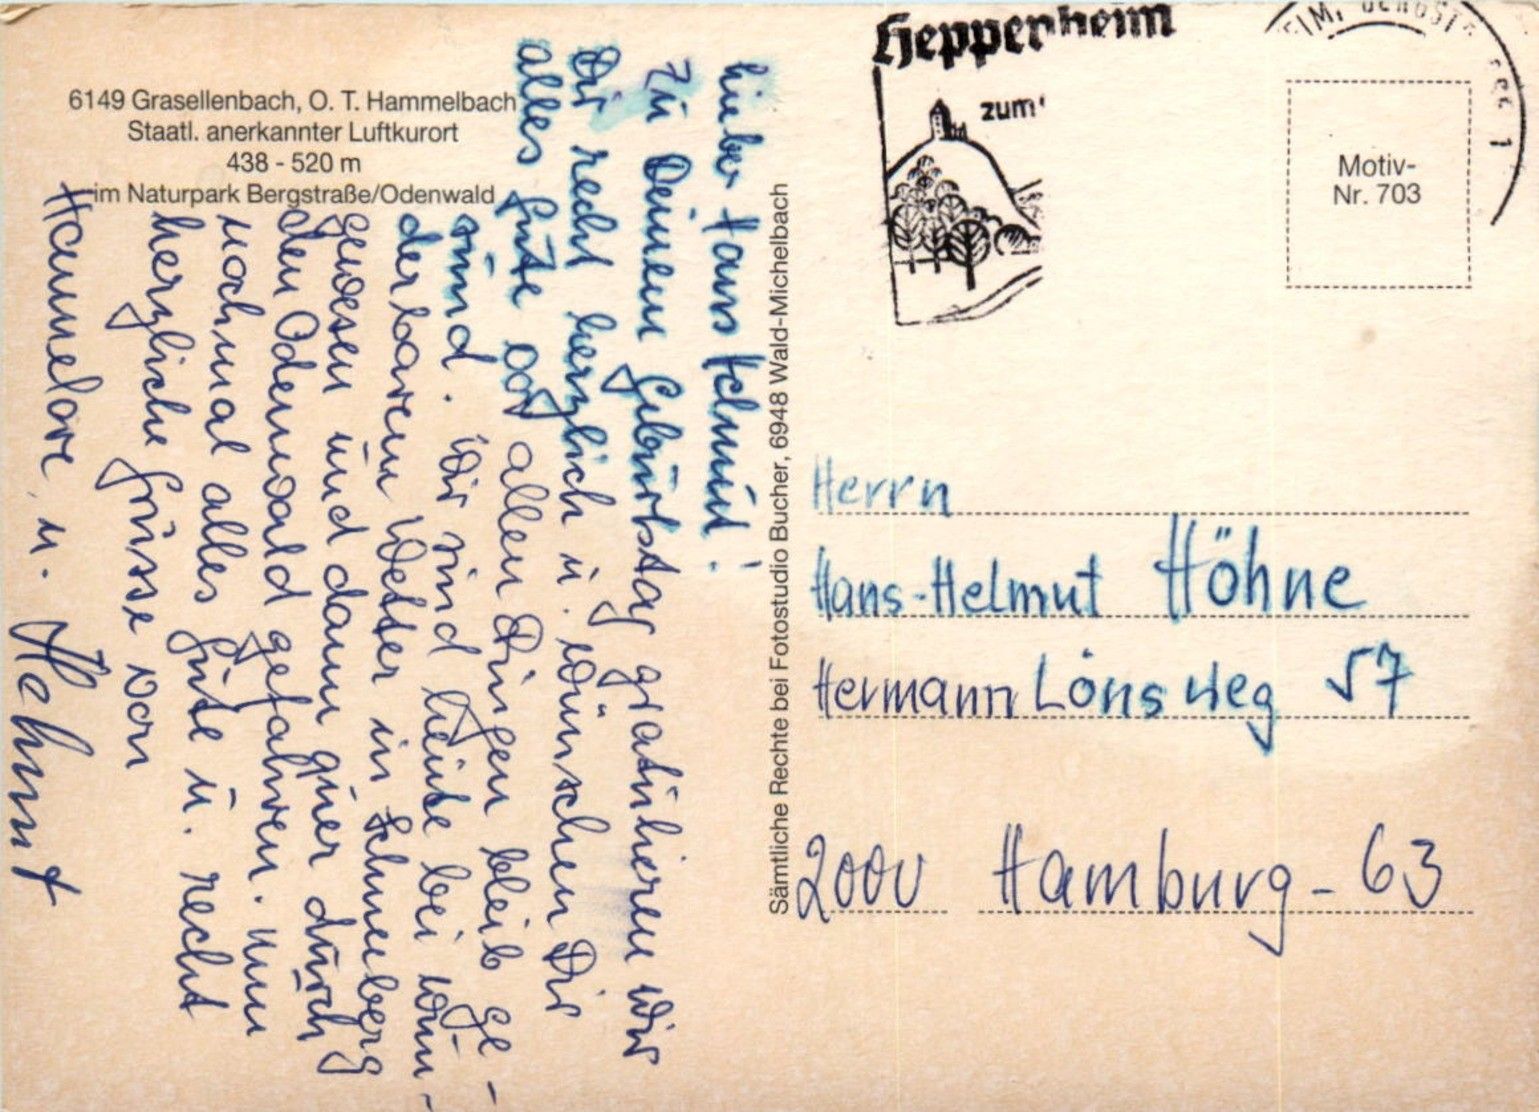 6149 Grasellenbach, O. T. Hammelbach
Staatl. anerkannter Luftkurort
438 - 520 m
im Naturpark Bergstraße/Odenwald
lieber Hans Helmut!
Zu Deinem Geburtstag gratulieren wir
Dir recht herzlich u. wünschen Dir
alles Gute vor allen Dingen bleib ge-
sund. Wir sind heute bei wun-
derbarem Wetter in Schmerberg
gewesen und dann quer durch
den Odenwald gefahren. Nun
nochmal alles Gute u. recht
herzliche Grüsse von
Hannelore u. Helmut
Sämtliche Rechte bei Fotostudio Bucher, 6948 Wald-Michelbach
Heppenheim
zum
Motiv-
Nr. 703
Herrn
Hans-Helmut Höhne
Hermann Löns Weg 57
2000 Hamburg - 63